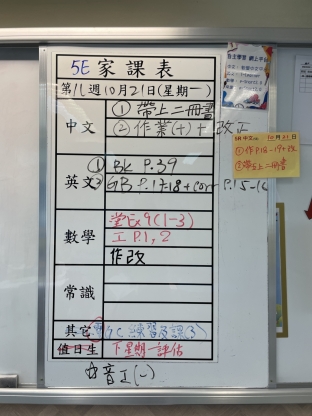 5E 家課表
第11週10月21日(星期一)
中文
① 帶上二冊書
② 作業(十)+改正
英文
① BK P.39
② GB P.17-18+corr P.15-16
數學
堂Ex9(1-3)
工P.1,2
作改
常識
其它
練習及課(3)
值日生
下星期一評估
音正(一)
10月21日
①作P.18-19+改
②帶上二冊書